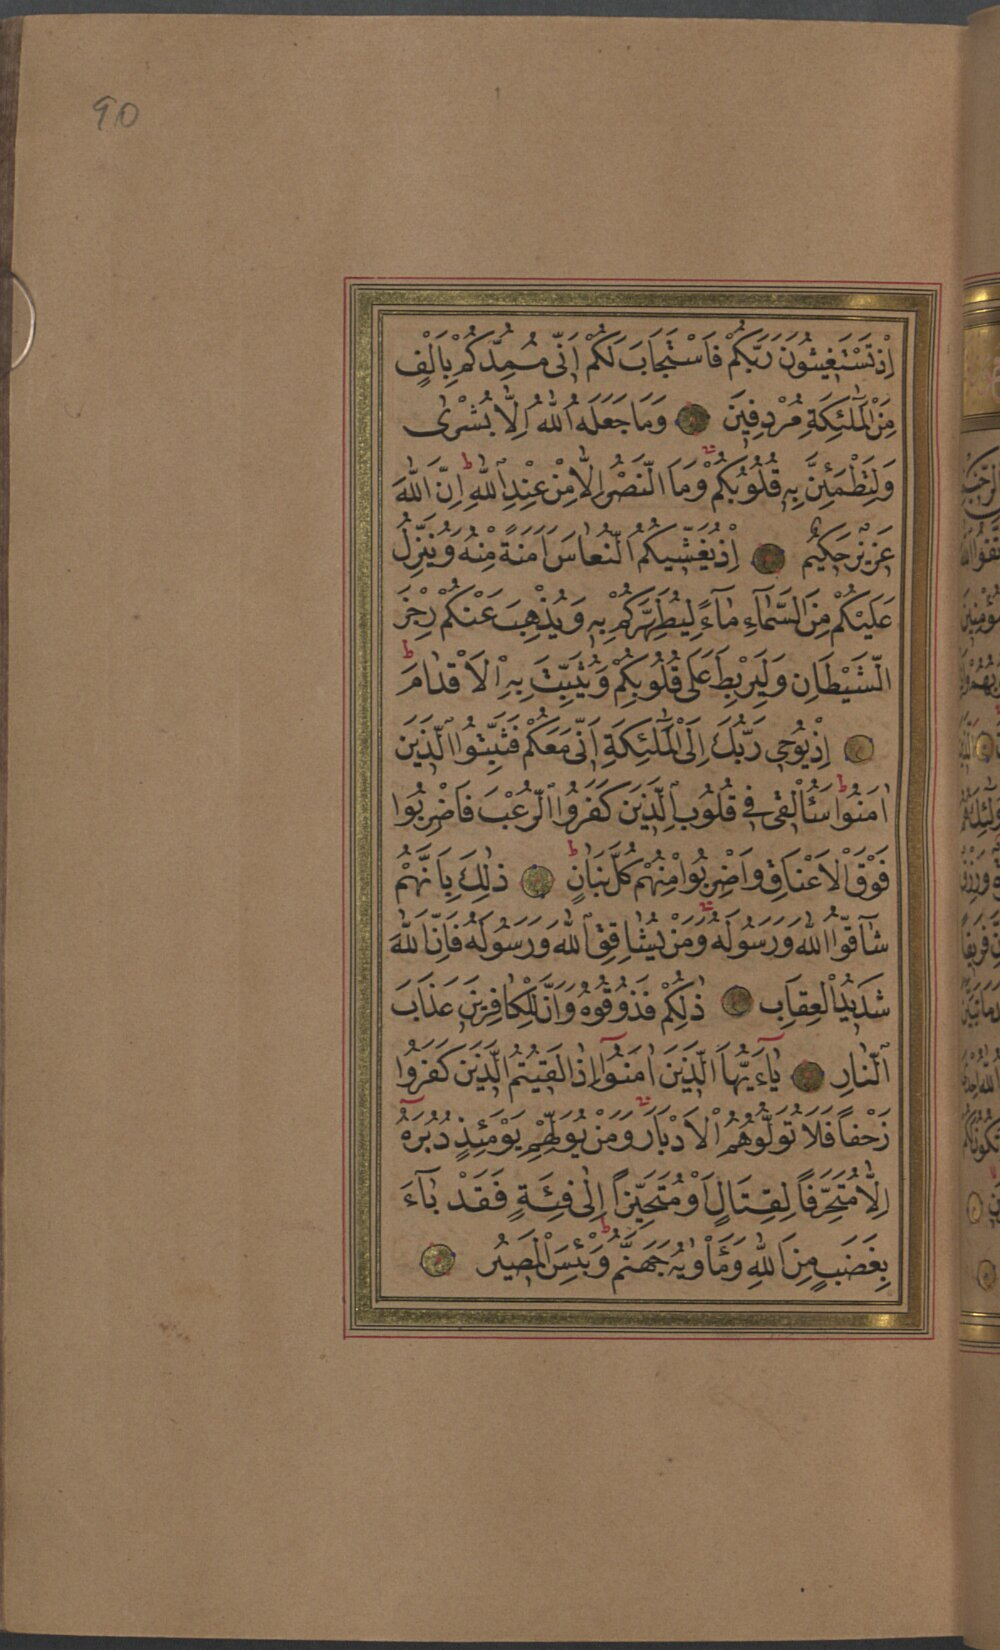 90
اِذْ تَسْتَغِيثُونَ رَبَّكُمْ فَاسْتَجَابَ لَكُمْ اَنّٖى مُمِدُّكُمْ بِاَلْفٍ
مِنَ الْمَلٰٓئِكَةِ مُرْدِفٖينَ وَمَا جَعَلَهُ اللّٰهُ اِلَّا بُشْرٰى
وَلِتَطْمَئِنَّ بِهٖ قُلُوبُكُمْ وَمَا النَّصْرُ اِلَّا مِنْ عِنْدِ اللّٰهِ ط اِنَّ اللّٰهَ
عَزٖيزٌ حَكٖيمٌ اِذْ يُغَشّٖيكُمُ النُّعَاسَ اَمَنَةً مِنْهُ وَيُنَزِّلُ
عَلَيْكُمْ مِنَ السَّمَٓاءِ مَٓاءً لِيُطَهِّرَكُمْ بِهٖ وَيُذْهِبَ عَنْكُمْ رِجْزَ
الشَّيْطَانِ وَلِيَرْبِطَ عَلٰى قُلُوبِكُمْ وَيُثَبِّتَ بِهِ الْاَقْدَامَ ط
اِذْ يُوحٖى رَبُّكَ اِلَى الْمَلٰٓئِكَةِ اَنّٖى مَعَكُمْ فَثَبِّتُوا الَّذٖينَ
اٰمَنُوا ط سَاُلْقٖى فٖى قُلُوبِ الَّذٖينَ كَفَرُوا الرُّعْبَ فَاضْرِبُوا
فَوْقَ الْاَعْنَاقِ وَاضْرِبُوا مِنْهُمْ كُلَّ بَنَانٍ ط ذٰلِكَ بِاَنَّهُمْ
شَٓاقُّوا اللّٰهَ وَرَسُولَهُ وَمَنْ يُشَاقِقِ اللّٰهَ وَرَسُولَهُ فَاِنَّ اللّٰهَ
شَدٖيدُ الْعِقَابِ ذٰلِكُمْ فَذُوقُوهُ وَاَنَّ لِلْكَافِرٖينَ عَذَابَ
النَّارِ يَٓا اَيُّهَا الَّذٖينَ اٰمَنُٓوا اِذَا لَقٖيتُمُ الَّذٖينَ كَفَرُوا
زَحْفًا فَلَا تُوَلُّوهُمُ الْاَدْبَارَ وَمَنْ يُوَلِّهِمْ يَوْمَئِذٍ دُبُرَهُٓ
اِلَّا مُتَحَرِّفًا لِقِتَالٍ اَوْ مُتَحَيِّزًا اِلٰى فِئَةٍ فَقَدْ بَٓاءَ
بِغَضَبٍ مِنَ اللّٰهِ وَمَاْوٰيهُ جَهَنَّمُ ط وَبِئْسَ الْمَصٖيرُ